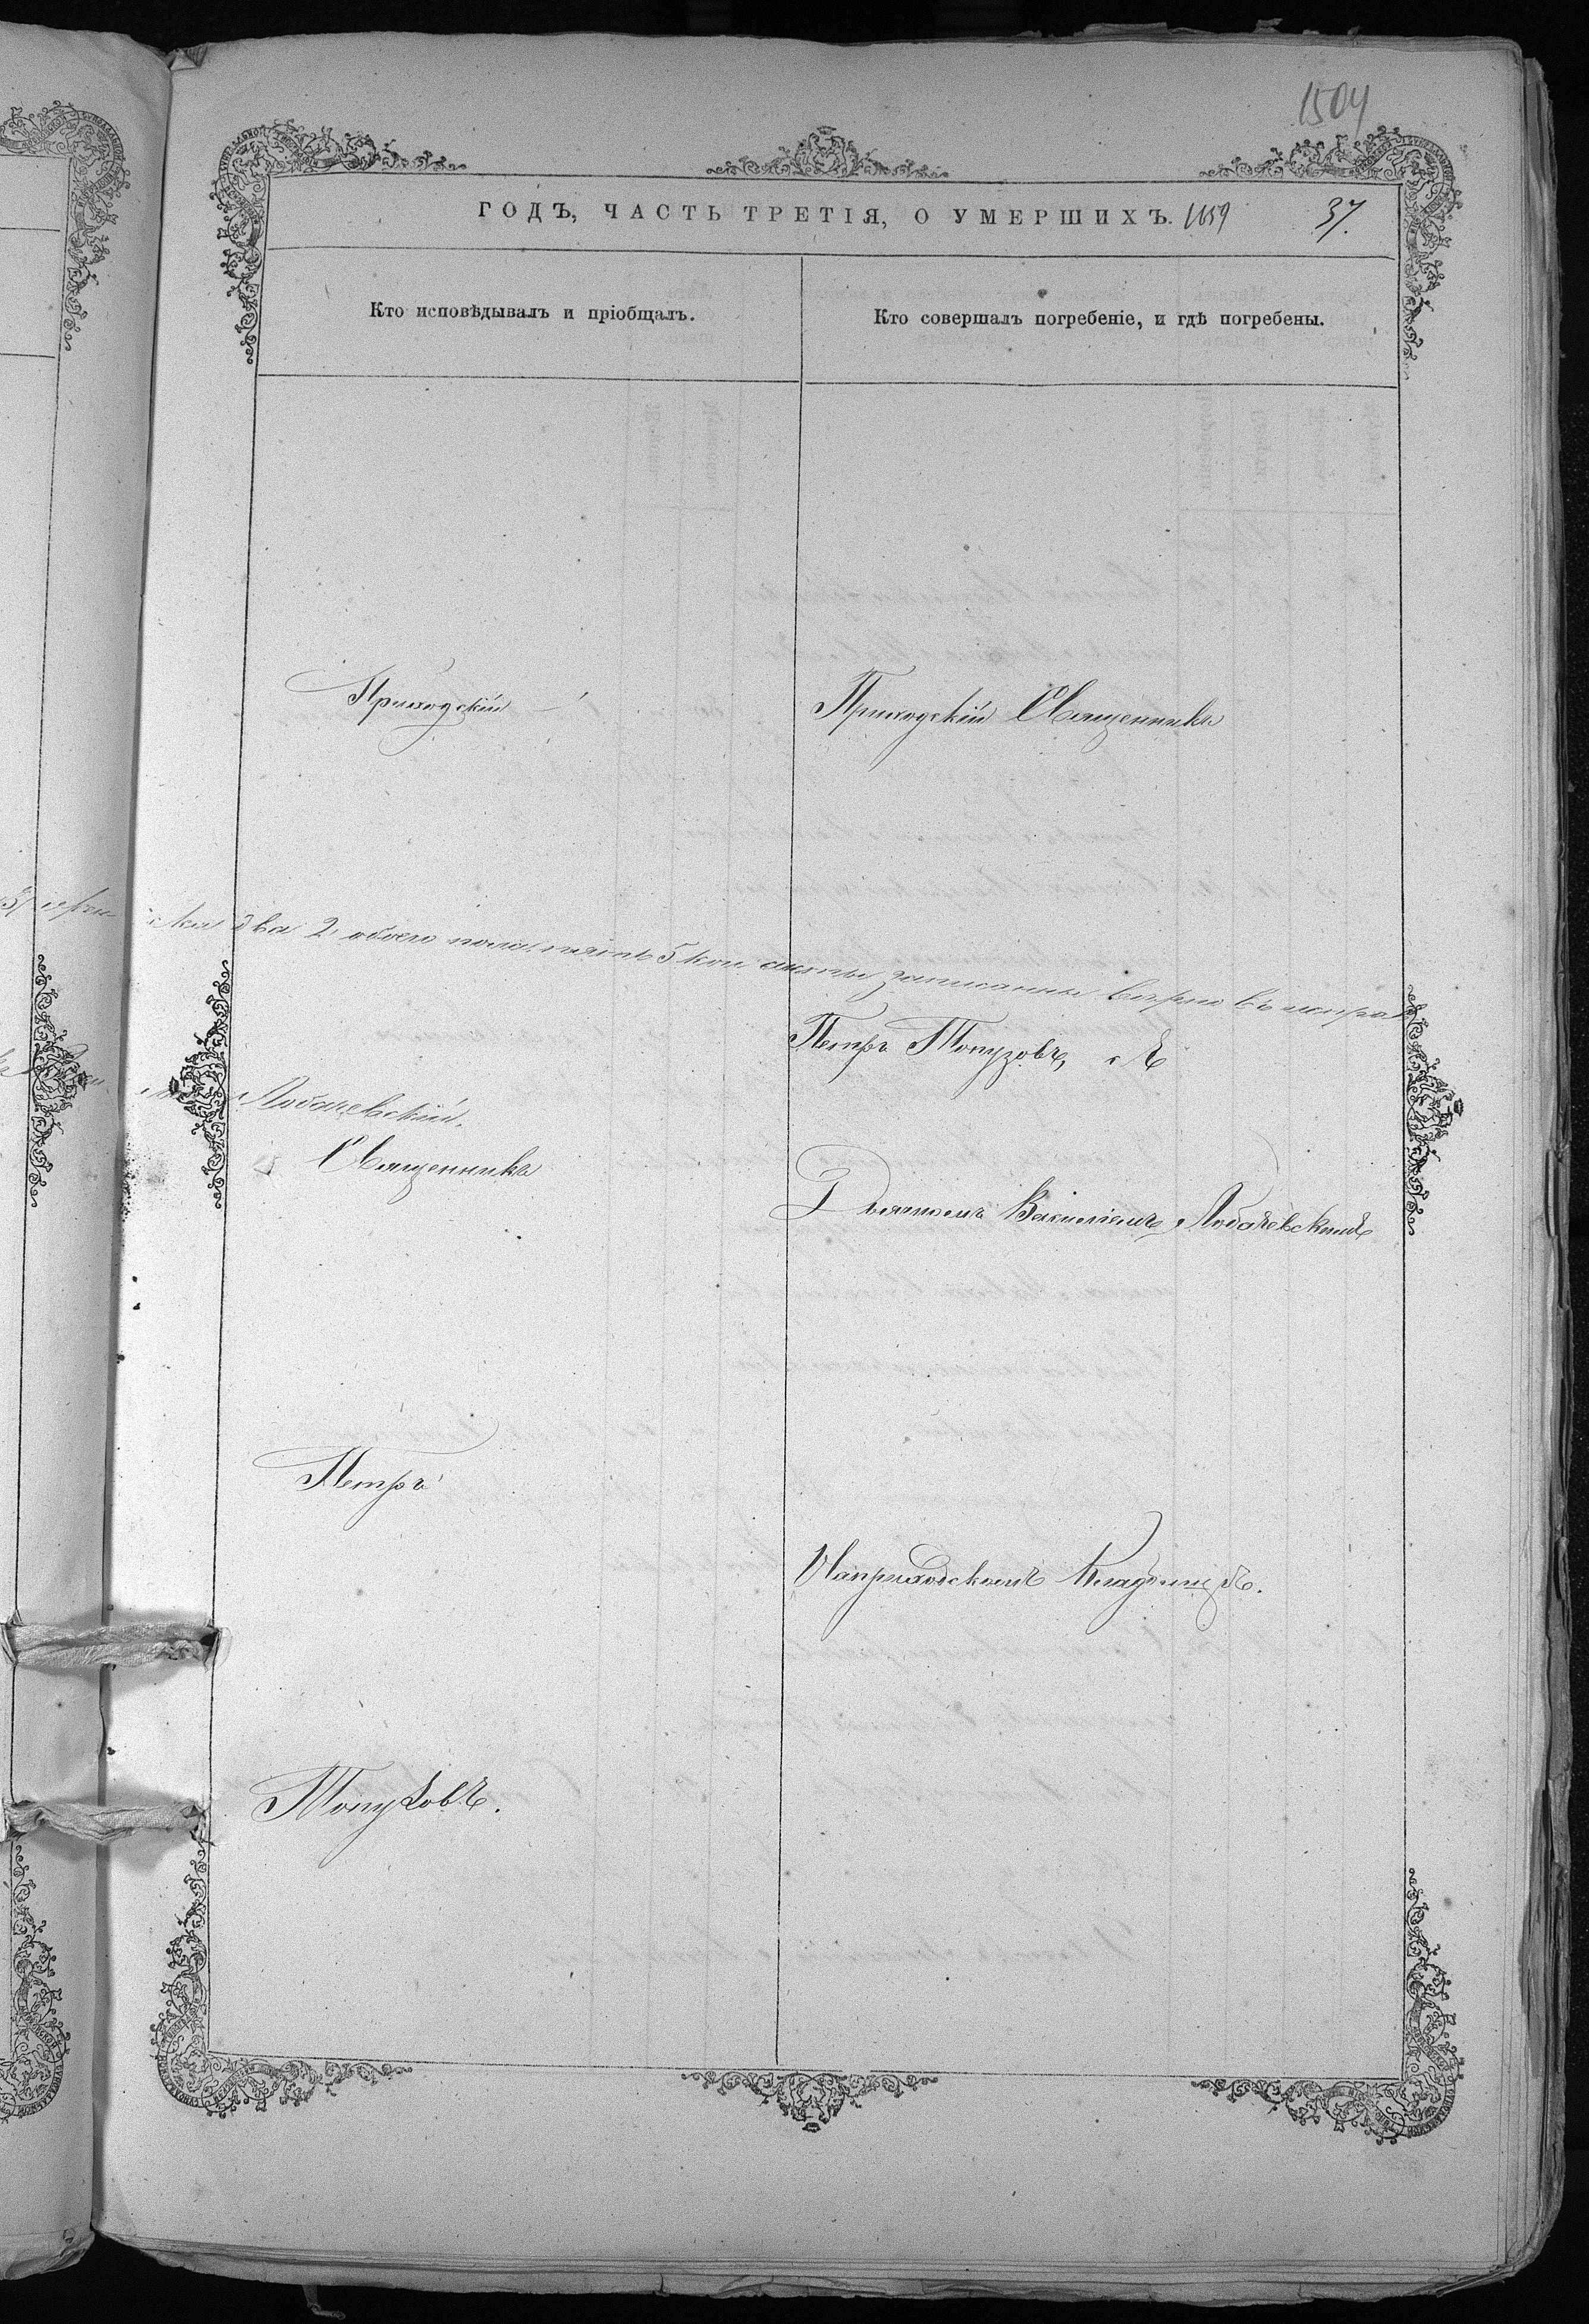 1504
ГОДЪ, ЧАСТЬ ТРЕТІЯ, О УМЕРШИХЪ. 1159 37.
Кто исповѣдывалъ и пріобщалъ.
Кто совершалъ погребеніе, и гдѣ погребены.
Приходскій
Приходскій Священникъ
два 2 обоего пола пять 5 записаны вѣрно въ
Петръ Топузовъ, съ
Лобачевскій.
Священникъ
Дьячкомъ Василіемъ Лобачевскимъ
Петръ
На приходскомъ Кладбищѣ.
Топузовъ.